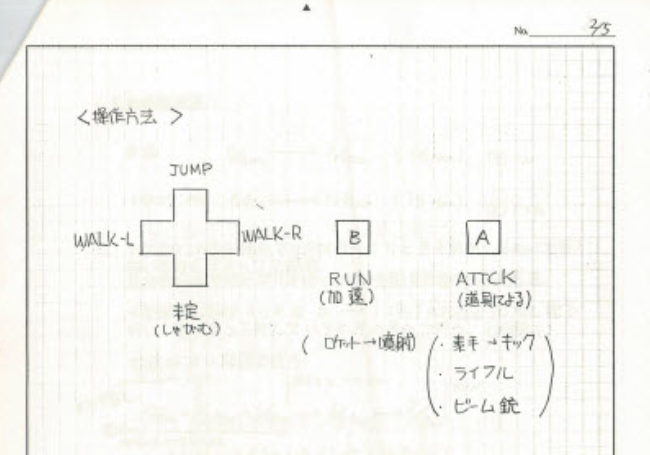 No. 2/5
<操作方法>
JUMP
WALK-L
WALK-R
B
A
RUN
(加速)
ATTCK
(道具による)
未定
(しゃがむ)
( ロケット→噴射)
・素手→キック
・ライフル
・ビーム銃